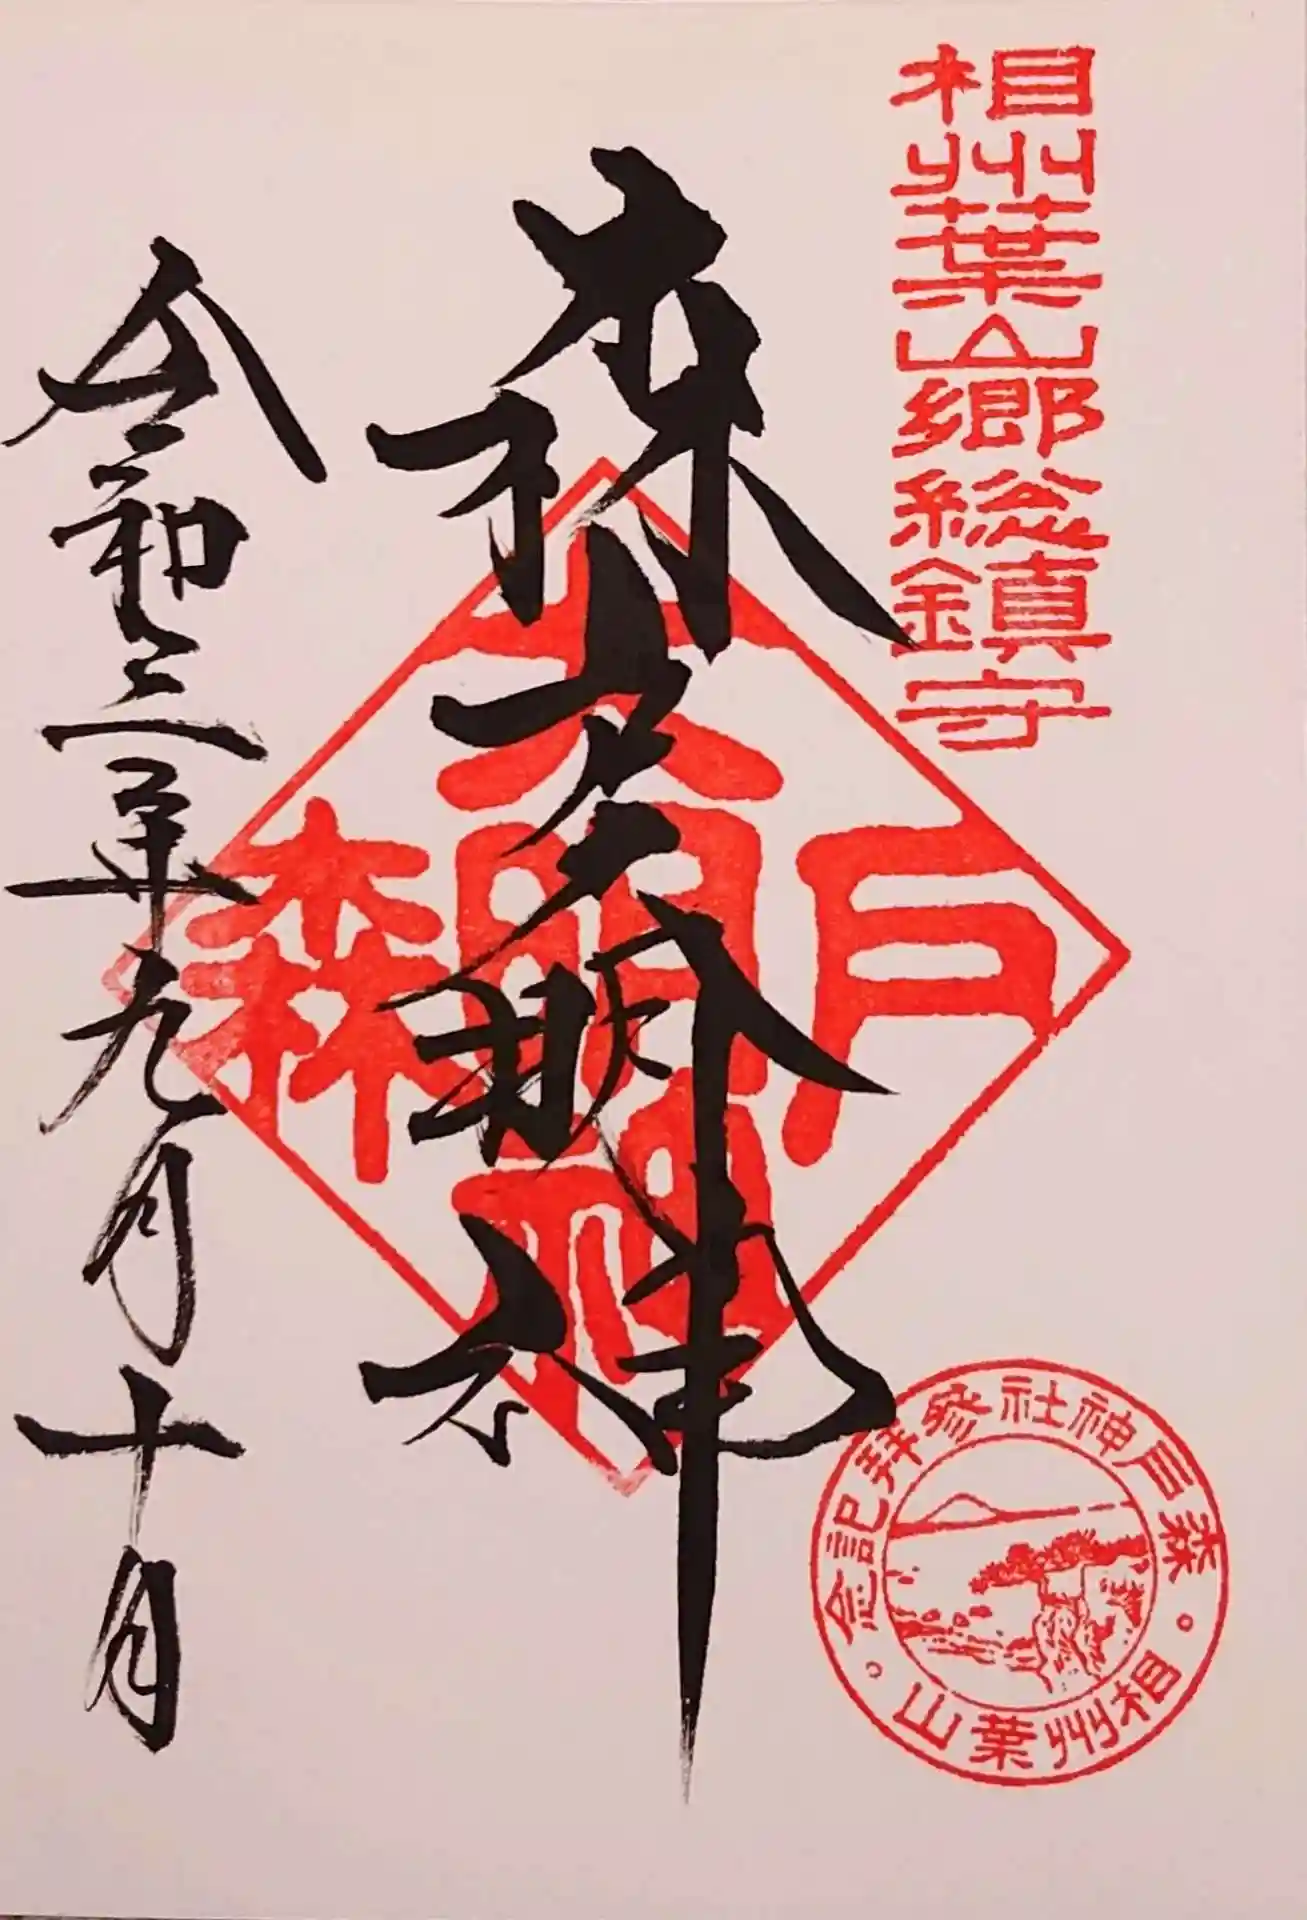 相州葉山郷総鎮守
森戸大明神
森戸大明神
令和三年九月十日
森戸神社参拝記念
相州葉山